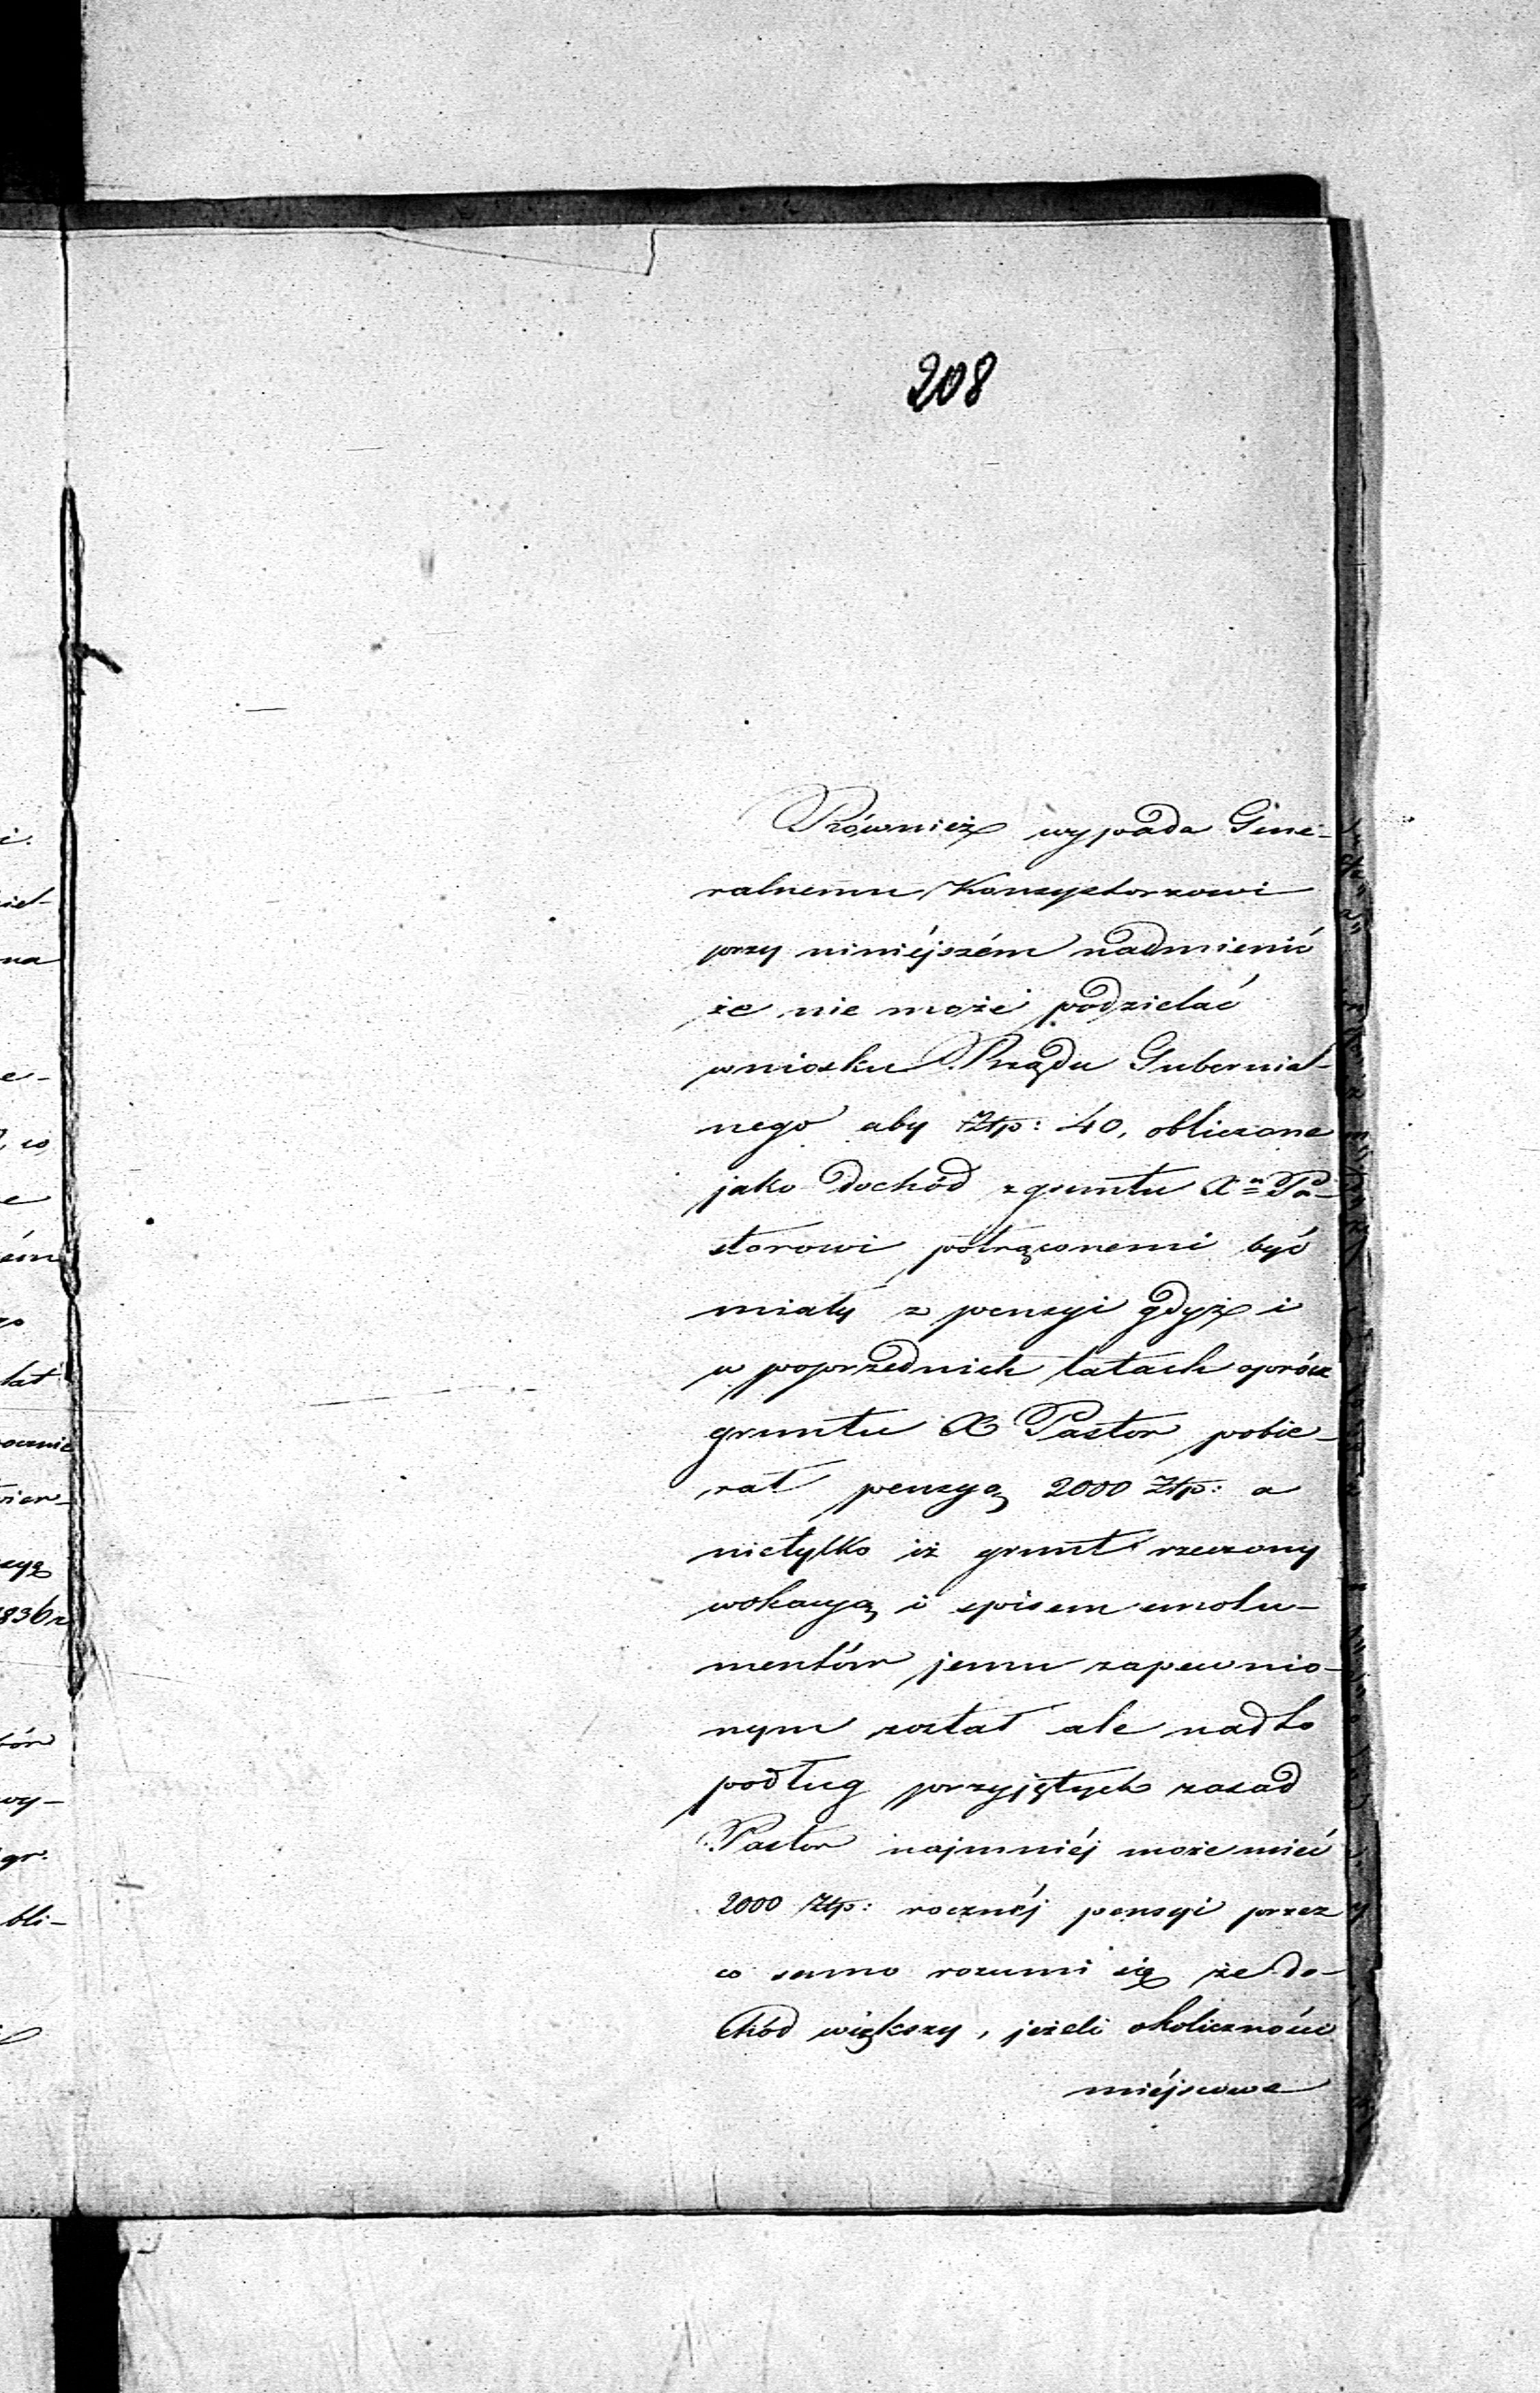 208
Również wypada Gene-
ralnemu Konsystorzowi
przy niniéjszém nadmienić
że nie może podzielać
wniosku Rządu Gubernial-
nego aby Złp: 40, obliczone
jako dochód z gruntu Xu Pa-
storowi potrąconemi być
miały z pensyi gdyż i
w poprzednich latach oprócz
gruntu X Pastor pobie-
rał pensyą 2000 Złp: a
nietylko iż grunt rzeczony
wokacyą i spisem emolu-
mentów jemu zapewnio-
nym został ale nadto
podług przyjętych zasad
Pastor najmniéj może mieć
2000 Złp: rocznéj pensyi przez
co samo rozumi się że do-
chód większy, jeżeli okoliczności
miéjscowe